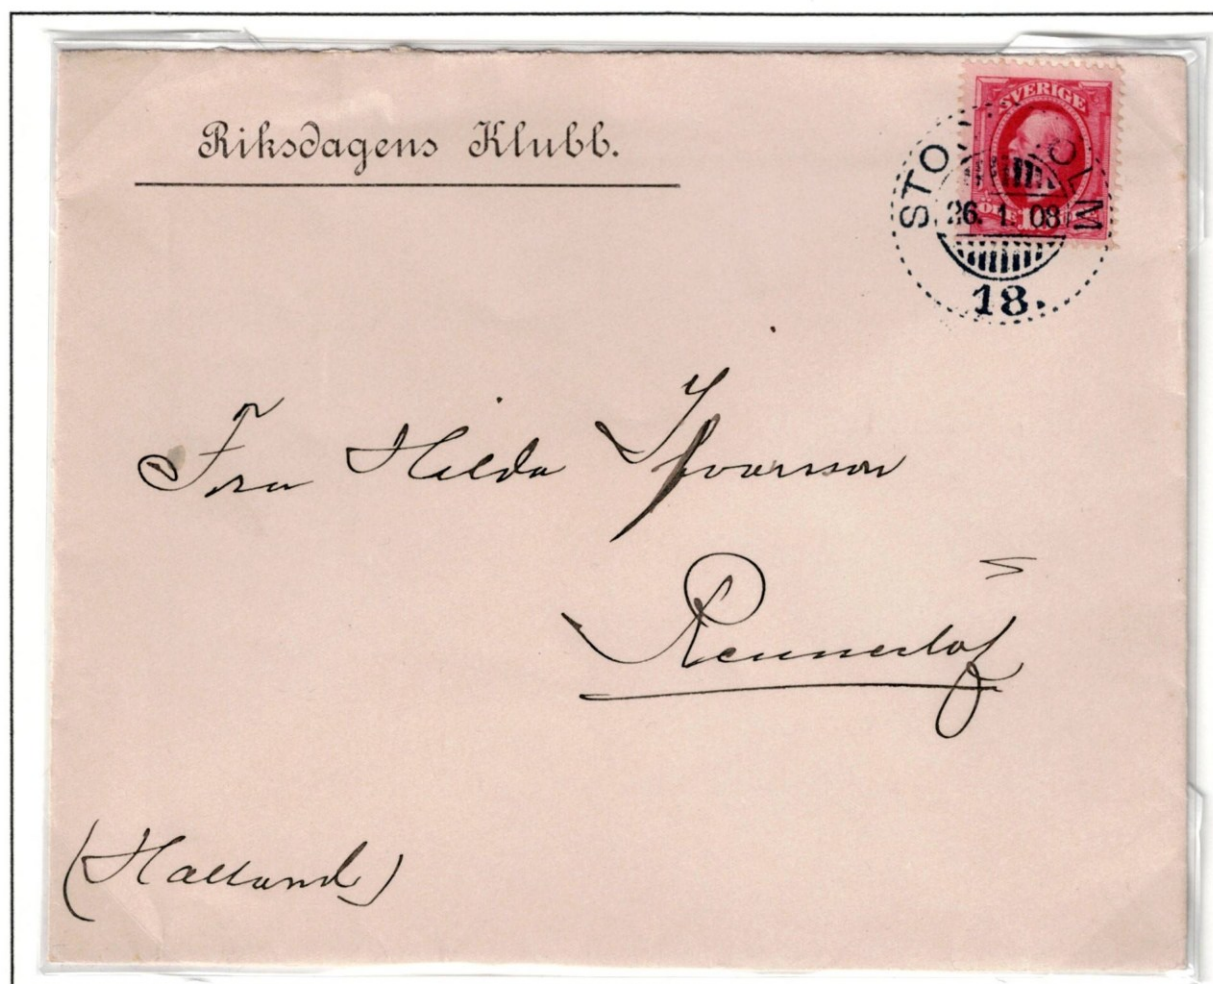 Riksdagens Klubb.
SVERIGE
STOCKHOLM
26. 1. 08
ÖRE 10
18.
Fru Hilda Ifvarsson
Rennerlöf
(Halland)